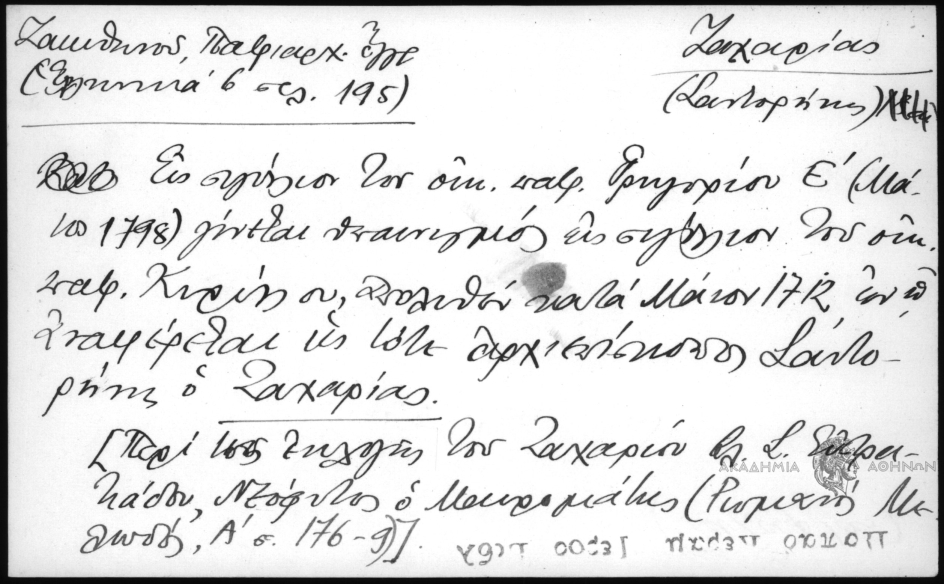 Ζακυθηνοῦ, Πατριαρχ. Ἔγγρ
(Ἑλληνικά 6 σελ. 195)
Ζαχαρίας
(Σαντορήνης)
Εἰς σιγίλλιον τοῦ οἰκ. πατρ. Γρηγορίου Ε´ (Μά-
ϊο 1798) γίνεται ὑπαινιγμός εἰς σιγίλλιον τοῦ οἰκ.
πατρ. Κυρίλλου, ἀπολυθέν κατά Μάϊον 1712 ἐν ᾧ
ἀναφέρεται ὡς τότε ἀρχιεπίσκοπος Σαντο-
ρήνης ὁ Ζαχαρίας.
[Περί τῆς ἐκλογῆς τοῦ Ζαχαρίου βλ. Σ. Εὐστρα-
τιάδου, Νεόφυτος ὁ Μαυρομμάτης (Ρωμανός Με-
λωδός, Α´ σ. 176-9)].
ΑΚΑΔΗΜΙΑ ΑΘΗΝΩΝ